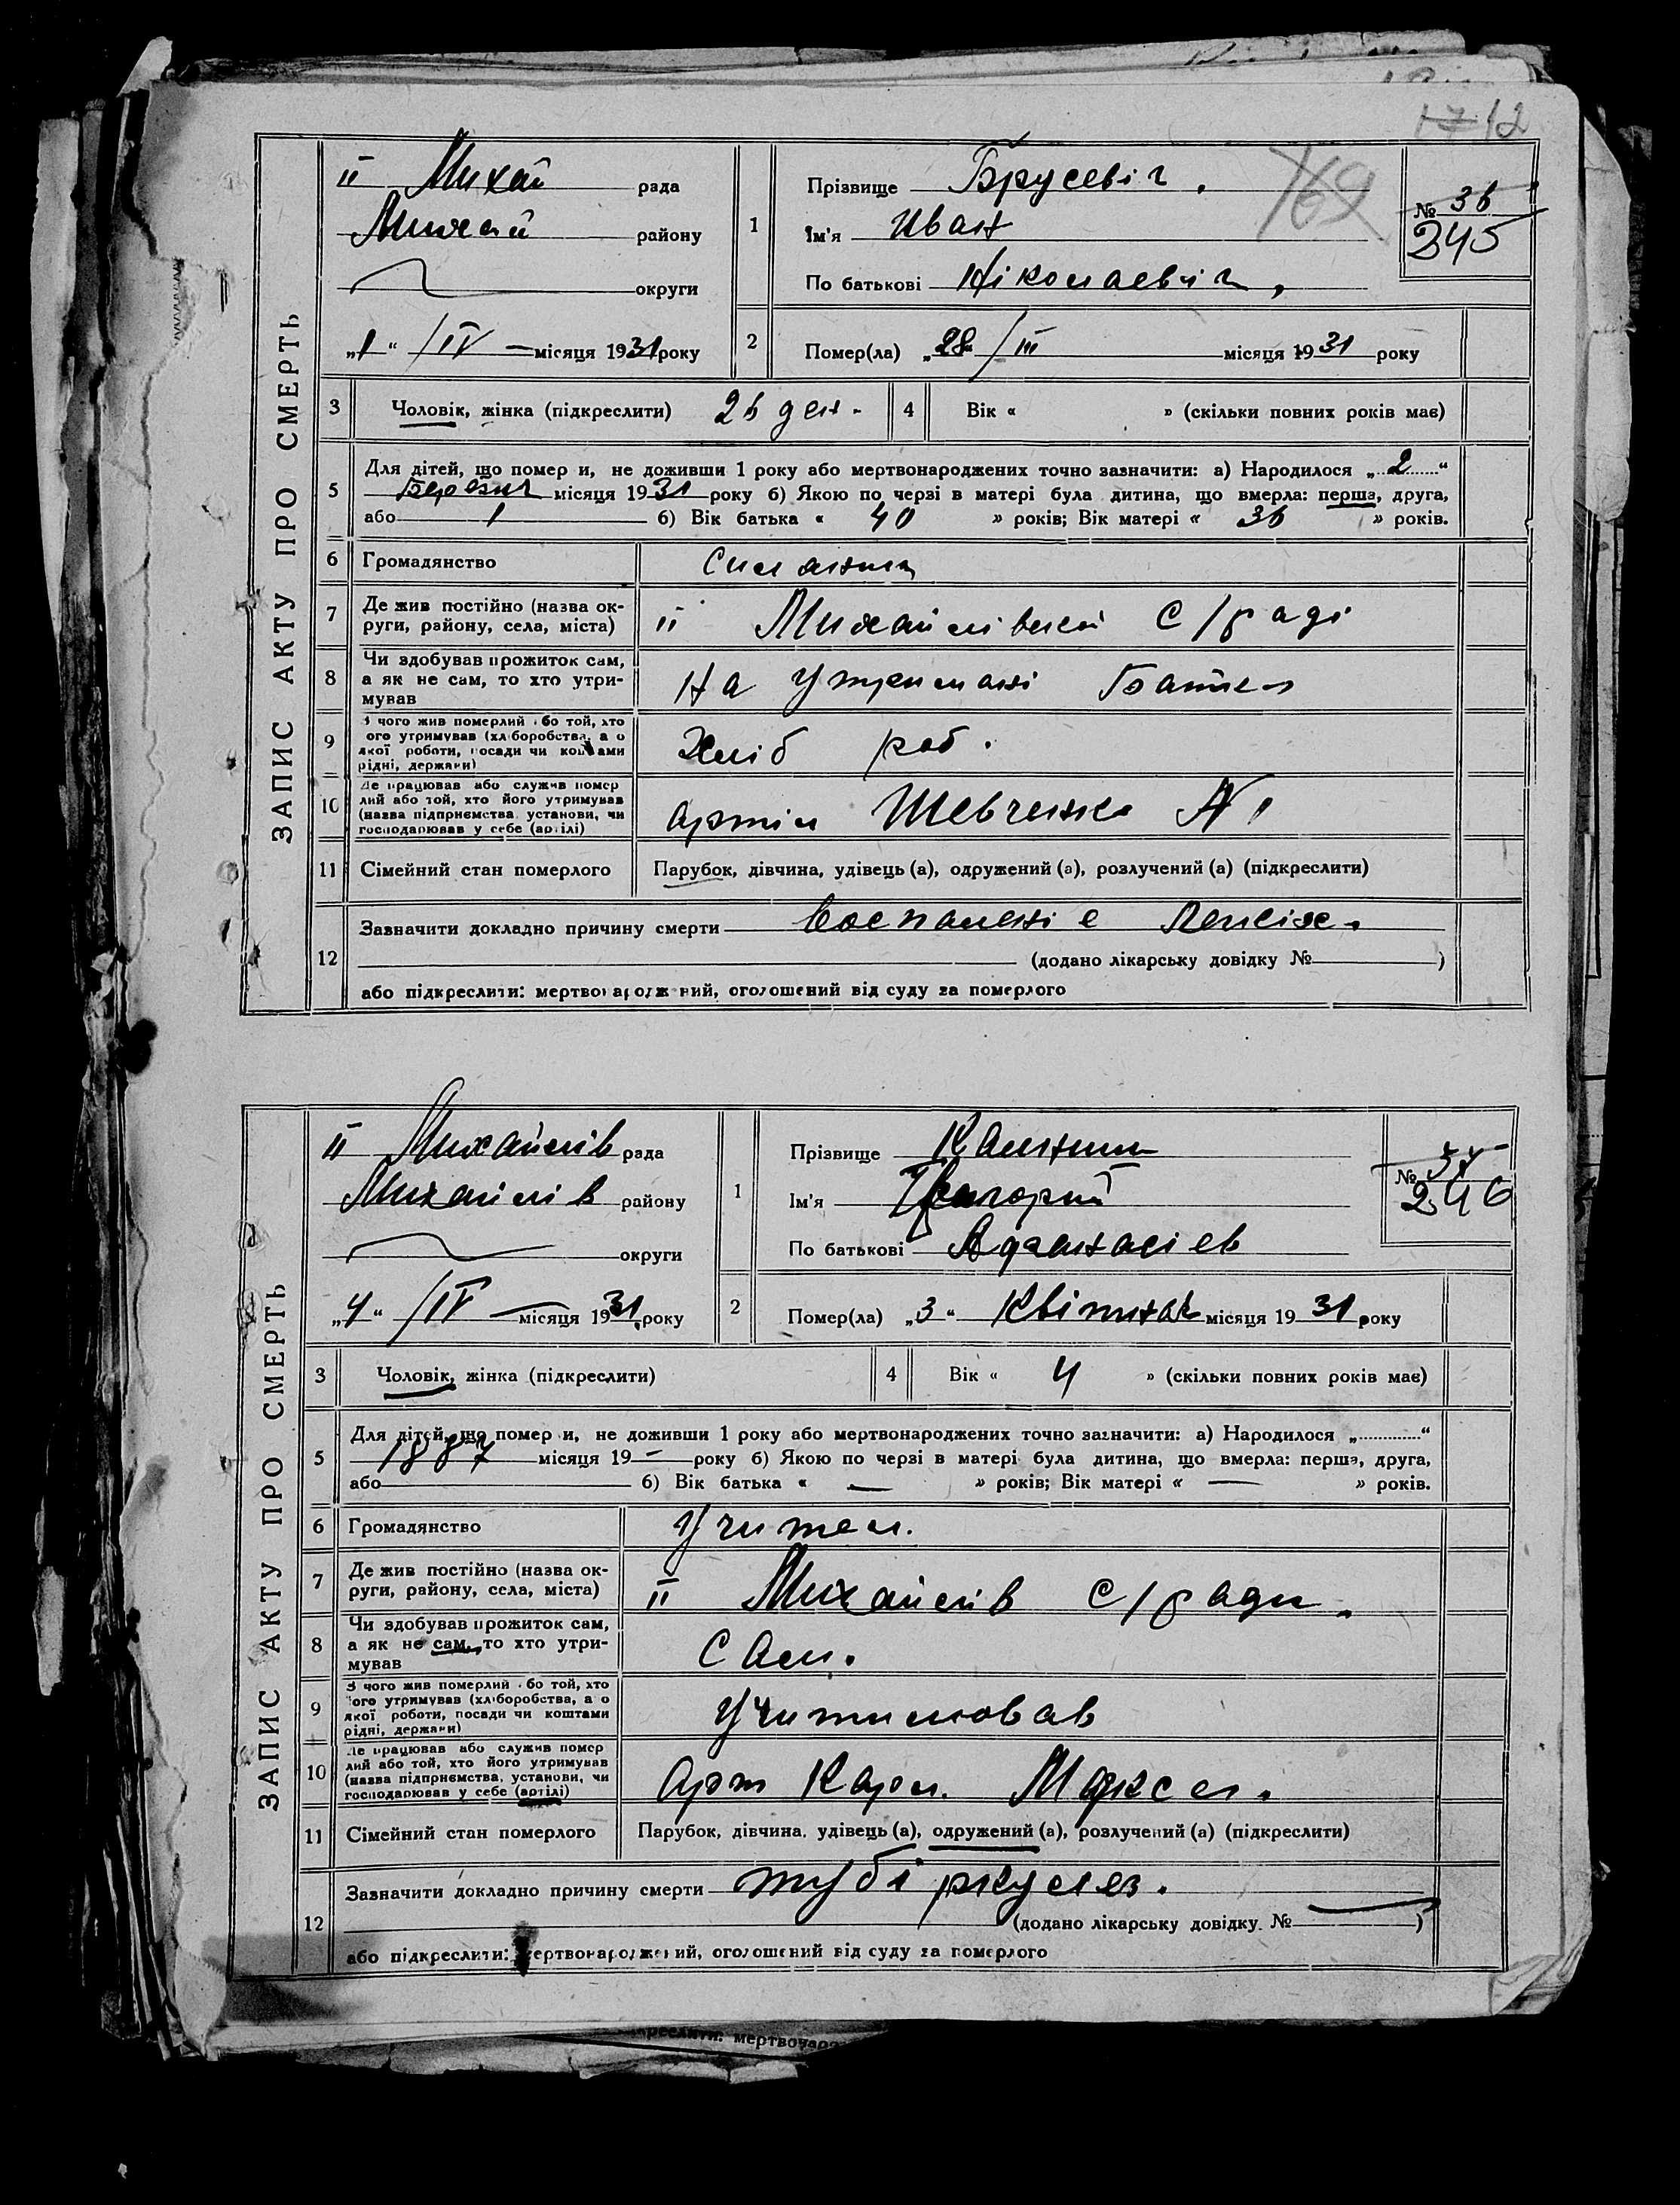 12
ЗАПИС АКТУ ПРО СМЕРТЬ
ІІ Михай рада
Михай району
округи
„1“ /IV місяця 1931 року
1
Прізвище Брусевіч.
Ім'я Иван
По батькові Ніколаевіч,
169
№ 36
245
2
Помер(ла) „28“ /III місяця 1931 року
3
Чоловік, жінка (підкреслити) 26 ден.
4
Вік « » (скільки повних років має)
5
Для дітей, що помер и, не доживши 1 року або мертвонароджених точно зазначити: а) Народилося „2“
місяця 1931 року б) Якою по черзі в матері була дитина, що вмерла: перша, друга,
або 1 б) Вік батька « 40 » років; Вік матері « 36 » років.
6
Громадянство
7
Де жив постійно (назва ок-
руги, району, села, міста)
ІІ Михайлівскій С/раді
8
Чи здобував прожиток сам,
а як не сам, то хто утри-
мував
На утримані
9
З чого жив померлий або той, хто
його утримував (хліборобства, а о
якої роботи, посади чи коштами
рідні, держави)
Хліб роб.
10
Де працював або служив помер
лий або той, хто його утримував
(назва підприємства, установи, чи
господарював у себе (артілі)
артіл Шевченко № 1
11
Сімейний стан померлого
Парубок, дівчина, удівець (а), одружений (а), розлучений (а) (підкреслити)
12
Зазначити докладно причину смерти Воспаленіе
(додано лікарську довідку № )
або підкреслити: мертвонароджений, оголошений від суду за померлого
ЗАПИС АКТУ ПРО СМЕРТЬ
ІІ Михайлів рада
Михайлів району
округи
„4“ /IV місяця 1931 року
1
Прізвище
Ім'я
По батькові Афанасіев
№ 37
246
2
Помер(ла) „3“ Квітня місяця 1931 року
3
Чоловік, жінка (підкреслити)
4
Вік « 4 » (скільки повних років має)
5
Для дітей, що помер и, не доживши 1 року або мертвонароджених точно зазначити: а) Народилося „ “
1887 місяця 19 – року б) Якою по черзі в матері була дитина, що вмерла: перша, друга,
або б) Вік батька « — » років; Вік матері « — » років.
6
Громадянство
Учител.
7
Де жив постійно (назва ок-
руги, району, села, міста)
ІІ Михайлів С/ради.
8
Чи здобував прожиток сам,
а як не сам, то хто утри-
мував
Сам.
9
З чого жив померлий або той, хто
його утримував (хліборобства, а о
якої роботи, посади чи коштами
рідні, держави)
Учителював
10
Де працював або служив помер
лий або той, хто його утримував
(назва підприємства, установи, чи
господарював у себе (артілі)
Арт Карл. Маркса.
11
Сімейний стан померлого
Парубок, дівчина, удівець (а), одружений (а), розлучений (а) (підкреслити)
12
Зазначити докладно причину смерти тубіркулез.
(додано лікарську довідку № )
або підкреслити: мертвонароджений, оголошений від суду за померлого